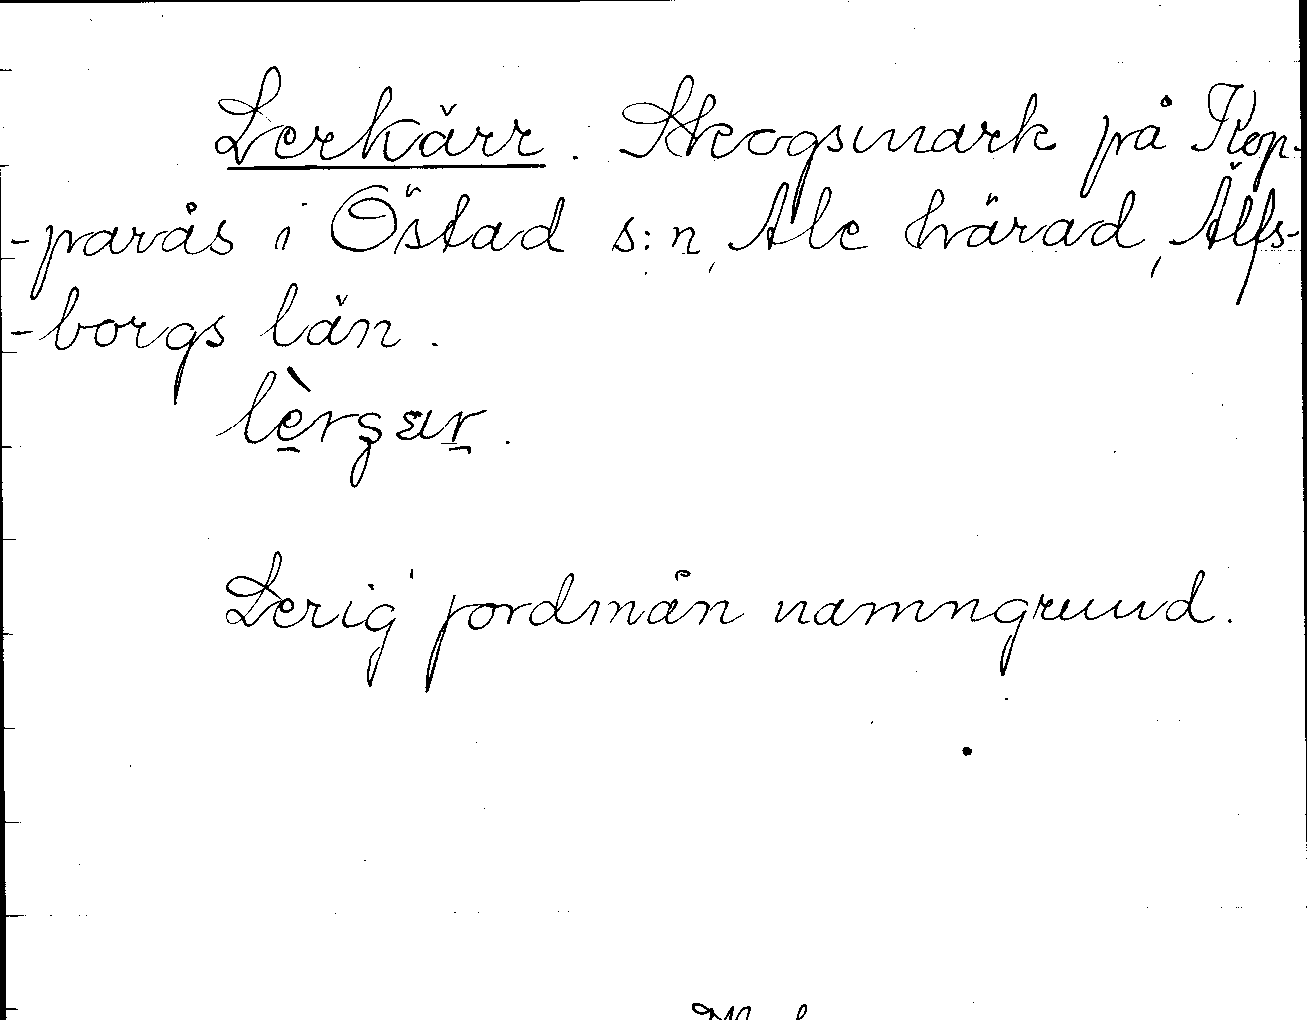 Lerkärr. Skogsmark på Kop-
-parås i Östad s:n, Ale härad, Älfs-
-borgs län.
Lerig jordmån namngrund.